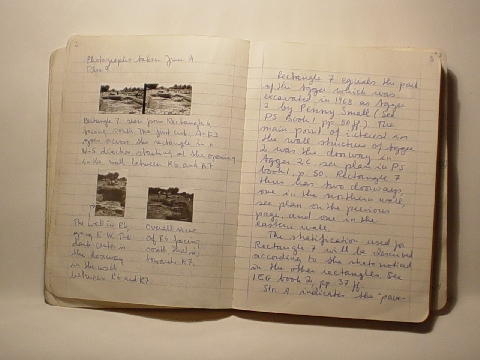 2
Photographs taken from A
Rectangle 7 seen from Rectangle 6
facing south. The
goes across the rectangle in a
N-S direction starting at the opening
in the wall between R6 and R7
The wall in R6,
going E-W. The
dark area is
the doorway
in the wall
between R6 and R7
overall view
of R7 facing
south
towards R7.
3
Rectangle 7 equals the part
of the Agger which was
excavated in 1963 as Agger
2 by Penny Small (See
PS book 1 pp. 50 ff). The
main point of interest in
the wall structure of Agger
2 was the doorway in
Agger 2C. see plan in PS
book 1, p. 50. Rectangle 7
thus has two doorways,
one in the northern wall,
see plan on the previous
page, and one in the
eastern wall.
The stratification used for
Rectangle 7 will be described
according to the strata noticed
in the other rectangles. See
IEG book 2, pp. 37 ff.
Str. A indicates the "pave-